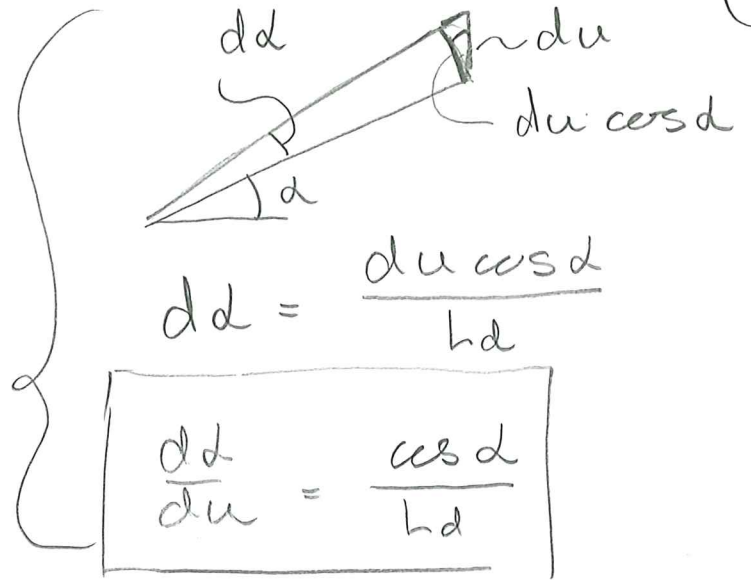 dα
du
du cosα
α
dα = du cosα / Ld
dα / du = cosα / Ld